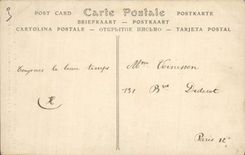 POST CARD Carte Postale POSTKARTE
BRIEFKAART — POSTKAART
CARTOLINA POSTALE — ОТКРЫТОЕ ПИСЬМО — TARJETA POSTAL
Toujours le beau temps
Mme Voinesson
131 Bd Diderot
Paris 12e